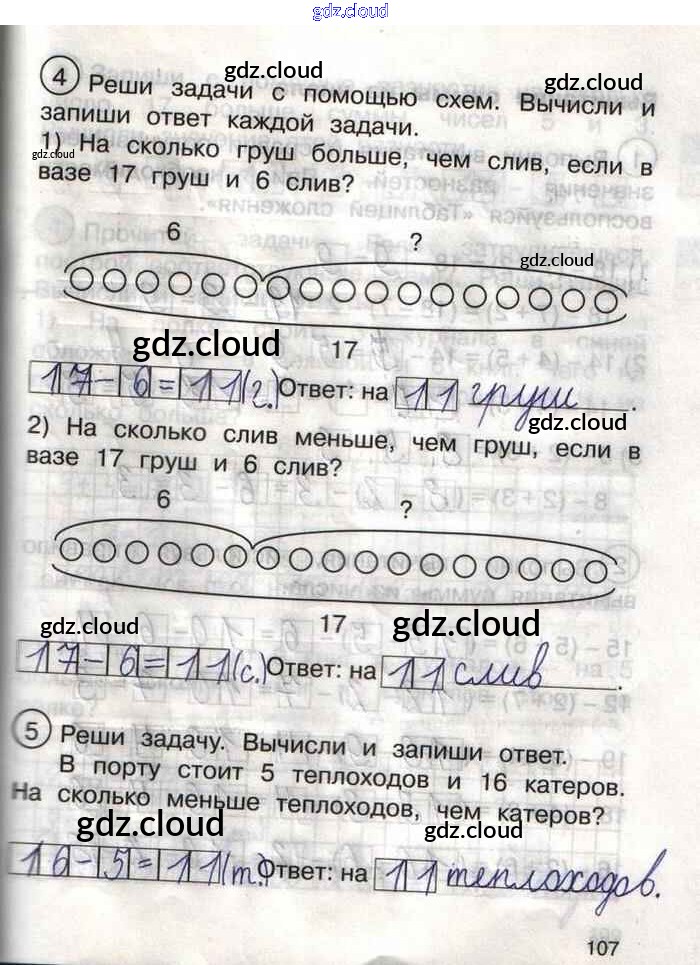 gdz.cloud
gdz.cloud
4 Реши задачи с помощью схем. Вычисли и
запиши ответ каждой задачи.
gdz.cloud
1) На сколько груш больше, чем слив, если в
вазе 17 груш и 6 слив?
6 ?
gdz.cloud
17
gdz.cloud
17-6=11(г.) Ответ: на 11 груш.
gdz.cloud
2) На сколько слив меньше, чем груш, если в
вазе 17 груш и 6 слив?
6 ?
17
gdz.cloud gdz.cloud
17-6=11(с.) Ответ: на 11 слив.
5 Реши задачу. Вычисли и запиши ответ.
В порту стоит 5 теплоходов и 16 катеров.
На сколько меньше теплоходов, чем катеров?
gdz.cloud gdz.cloud
16-5=11(т.) Ответ: на 11 теплоходов.
107